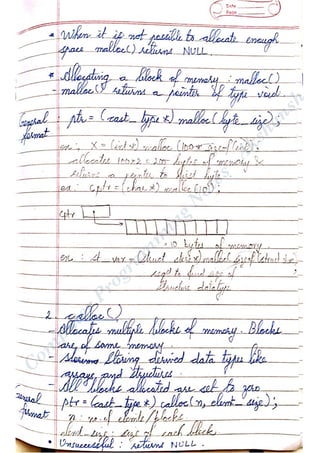 Date
Page
* When it is not possible to allocate enough
space malloc() returns NULL.
* Allocating a block of memory : malloc()
- malloc() returns a pointer of type void.
General format
ptr = (cast_type *) malloc (byte_size);
en: X = (int *) malloc (100 * sizeof(int));
allocates 100×2 = 200 bytes of memory &
returns a pointer to first byte.
en: cptr = (char *) malloc (10);
cptr
10 bytes of memory
en: st_var = (struct *) malloc( sizeof (struct
reqd to find size of
structure datatype
2. calloc()
- Allocates multiple blocks of memory. Blocks
are of same memory
- Storing derived data types like
arrays and structures
- All blocks allocated are set to zero
General format
ptr = (cast_type *) calloc (n, elemt_size);
n : no. of elemts/blocks
elemt_size : size of each block
• Unsuccessful : returns NULL.
Programming